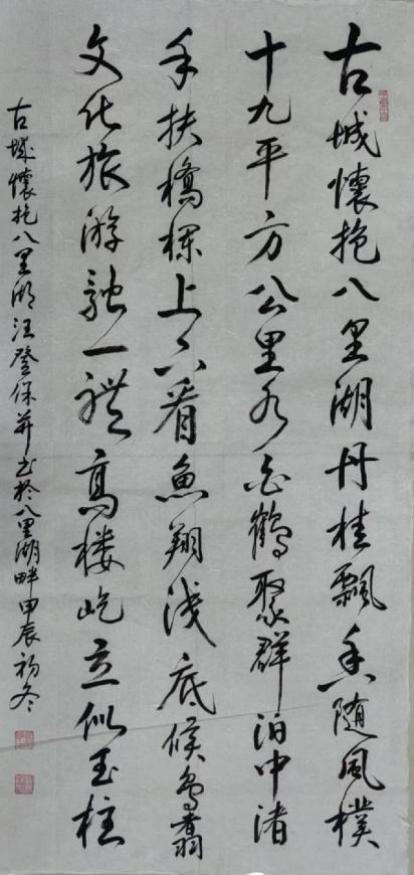 古城懷抱八里湖丹桂飄香随風樸
十九平方公里水白鶴聚群泊中渚
手扶橋欄上下看魚翔淺底候鳥翥
文化旅游融一體高楼屹立似玉柱
古城懷抱八里湖汪登保并书於八里湖畔甲辰初冬